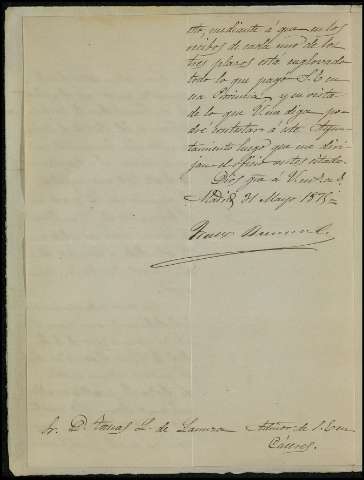 to, mediante á que en los
recibos de cada uno de los
tres plazos esta englovado
todo lo que pagó S. E. en
esa Provincia, y en vista
de lo que V. me diga po-
dré contestar á ese Ayun-
tamiento luego que me diri-
jan el oficio
Dios gûe á V.
Madrid 31 Mayo 1875 =
Sr. D. L. de Admor. de S. E. en
Cáceres.